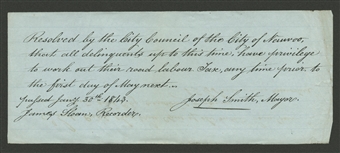 Resolved by the City Council of the City of Nauvoo,
that all delinquents up to this time, have privilege
to work out their road labour Tax, any time prior to
the first day of May next.
passed Jany 30th 1843.
Joseph Smith, Mayor
James Sloan, Recorder.